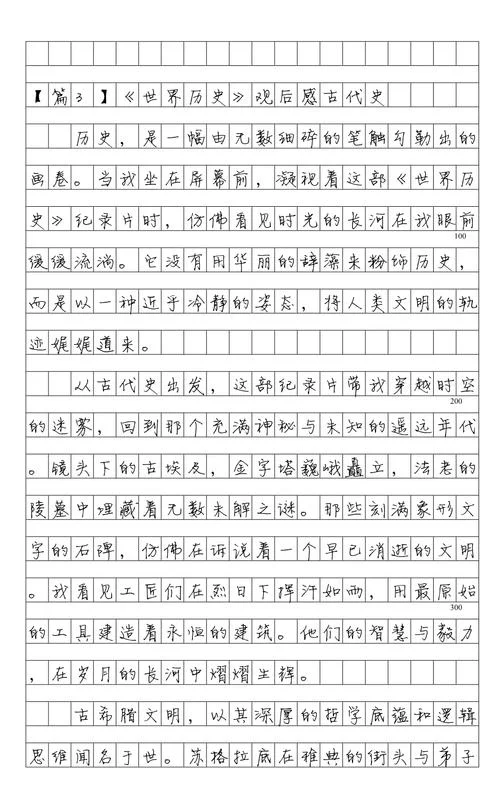 【篇3】《世界历史》观后感古代史
历史，是一幅由无数细碎的笔触勾勒出的
画卷。当我坐在屏幕前，凝视着这部《世界历
史》纪录片时，仿佛看见时光的长河在我眼前
100
缓缓流淌。它没有用华丽的辞藻来粉饰历史，
而是以一种近乎冷静的姿态，将人类文明的轨
迹娓娓道来。
从古代史出发，这部纪录片带我穿越时空
200
的迷雾，回到那个充满神秘与未知的遥远年代
。镜头下的古埃及，金字塔巍峨矗立，法老的
陵墓中埋藏着无数未解之谜。那些刻满象形文
字的石碑，仿佛在诉说着一个早已消逝的文明
。我看见工匠们在烈日下挥汗如雨，用最原始
300
的工具建造着永恒的建筑。他们的智慧与毅力
，在岁月的长河中熠熠生辉。
古希腊文明，以其深厚的哲学底蕴和逻辑
思维闻名于世。苏格拉底在雅典的街头与弟子